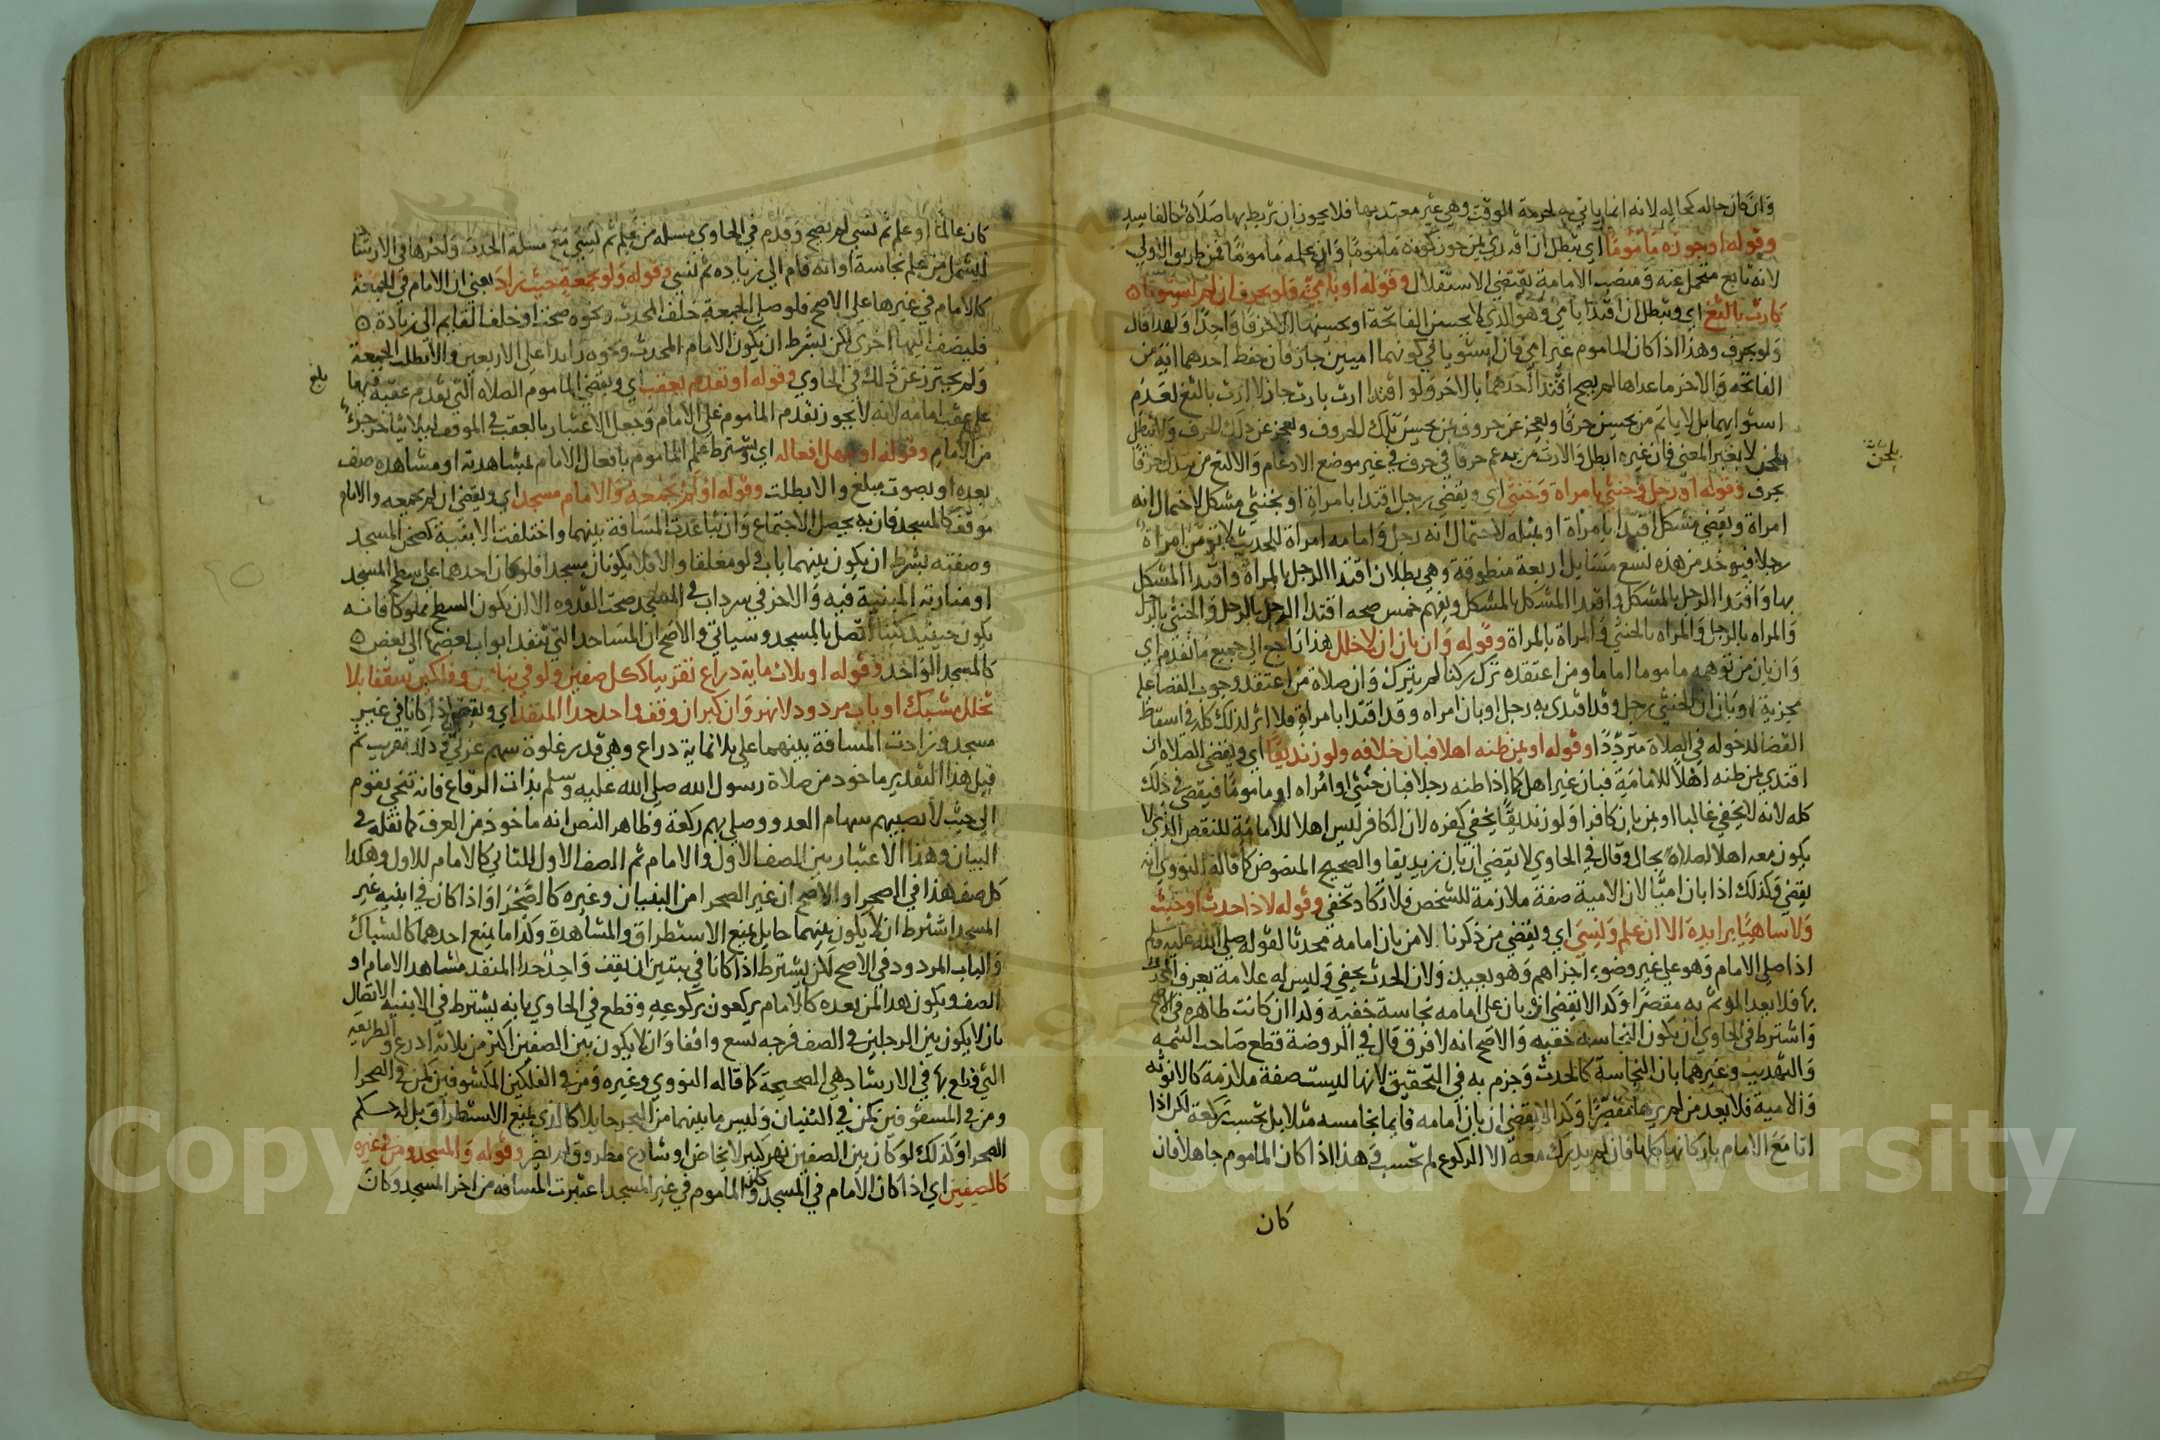 وان كان حاله كحاله لانه انما ياتي به لحرمة الوقت وهي غير معتد بها فلا يجوز ان تربط بها صلاة كالفاسد
وقوله او جوزه ماموما اي تبطل ان اقتدى بمن جوز كونه ماموما وان علمه ماموما فمن طريق الاولى
لانه تابع متحمل عنه ومنصب الامامة يقتضي الاستقلال وقوله او بامي ولو بحرف ان لم يستويا
كارت بالثغ اي وتبطل ان اقتدا بامي وهو الذي لا يحسن الفاتحة او يحسنها الا حرفا واحدا ولهذا قال
ولو بحرف وهذا اذا كان الماموم غير امي فان استويا في كونهما اميين جاز فان حفظ احدهما اية من
الفاتحه والاخر ما عداها لم يصح اقتدا احدهما بالاخر ولو اقتدا ارت بارت جاز لا ارت بالثغ لعدم
استوايهما بل لا ياتم من يحسن حرفا ويعجز عن حروف بمن يحسن تلك الحروف ويعجز عن ذلك الحرف ولا تبطل
بلحن
لا يغير المعنى فان غيره ابطل والارت من يدغم حرفا في حرف في غير موضع الادغام والالثغ من يبدل حرفا
بحرف وقوله او رجل وخنثى بامراة وخنثى اي ويقضي رجل اقتدا بامراة او بخنثى مشكل لاحتمال انه
امراة ويقضي مشكل اقتدا بامراة او بمثله لاحتمال انه رجل وامامه امراة للحديث لا تؤمن امراة
رجلا فيوخذ من هذه تسع مسايل اربعة منطوقة وهي بطلان اقتدا الرجل بالمراة واقتدا المشكل
بها واقتدا الرجل بالمشكل واقتدا المشكل بالمشكل ويفهم خمس صحه اقتدا الرجل بالرجل والخنثى بالرجل
والمراه بالرجل والمراه بالخنثى والمراة بالمراة وقوله وان بان ان لا خلل هذا راجع الى جميع ما تقدم اي
وان بان من توهمه ماموما اماما ومن اعتقده ترك ركنا لم يترك وان صلاة من اعتقد وجوب القضا عليه
مجزية او بان ان الخنثى رجل وقد اقتدى به رجل او بان امراه وقد اقتدا بامراة فلا اثر لذلك كله في اسقاط
القضا لدخوله في الصلاة مترددا وقوله او بمن ظنه اهلا فبان خلافه ولو زنديقا اي ويقضي الصلاه ان
اقتدى بمن ظنه اهلا للامامة فبان غير اهل كما اذا ظنه رجلا فبان خنثى او امراه او ماموما فيقضي في ذلك
كله لانه لا يخفى غالبا او بمن بان كافرا ولو زنديقا يخفي كفره لان الكافر ليس اهلا للامامة للنقص الذي لا
يكون معه اهلا لصلاة بحال وقال في الحاوي لا يقضي ان بان زنديقا والصحيح المنصوص كما قاله النووي انه
يقضي وكذلك اذا بان اميا لان الامية صفة ملازمة للشخص فلا تكاد تخفى وقوله لا ذا حدث او خبث
ولا ساهيا بزايدة الا ان علم ونسي اي ويقضي من ذكرنا لا من بان امامه محدثا لقوله صلى الله عليه وسلم
اذا صلى الامام وهو على غير وضوء اجزاهم وهو يعيد ولان الحدث يخفى وليس له علامة يعرف المحدث
بها فلا يعد المؤتم به مقصرا وكذا لا يقضي ان بان على امامه نجاسة خفيه وكذا ان كانت ظاهره في الاصح
واشترط في الحاوي ان يكون النجاسة خفيه والاصح انه لا فرق قال في الروضة قطع صاحب التتمه
والتهذيب وغيرهما بان النجاسة كالحدث وجزم به في التحقيق لانها ليست صفة ملازمة كالانوثه
والامية فلا يعد من لم يرها مقصرا وكذا لا يقضي ان بان امامه قايما بخامسه مثلا بل تحسب ركعة لكن اذا
اتا مع الامام باركانها كلها فان لم يدرك معه الا الركوع لم تحسب في هذا اذا كان الماموم جاهلا فان
كان
كان عالما او علم ثم نسي لم يصح وقدم في الحاوي مسله من علم ثم نسي مع مسله الحدث واخرها في الارشاد
ليشمل من علم نجاسة او انه قام الى زياده ثم نسي وقوله ولو بجمعة حيث زاد يعني ان الامام في الجمعة
كالامام في غيرها على الاصح فلو صلى الجمعة خلف المحدث ونحوه صحت او خلف القايم الى زيادة
فليضف اليها اخرى لكن بشرط ان يكون الامام المحدث ونحوه زايدا على الاربعين والا بطلت الجمعة
ولم يحترز عن ذلك في الحاوي وقوله او تقدم بعقب اي ويقضي الماموم الصلاه التي تقدم عقبه فيها
بلغ
على عقب امامه لانه لا يجوز تقدم الماموم على الامام وجعل الاعتبار بالعقب في الموقف ليلا يتاخر جزء
من الامام وقوله او جهل افعاله اي ويشترط علم الماموم بافعال الامام بمشاهدته او مشاهده صف
بعده او بصوت مبلغ والا بطلت وقوله او لم يجمعه والامام مسجد اي ويقضي ان لم يجمعه والامام
موقف كالمسجد فان به يحصل الاجتماع وان تباعدت المسافة بينهما واختلفت الابنية كصحن المسجد
وصفته بشرط ان يكون بينهما باب نافذ ولو مغلقا والا فلا يكونان مسجدا فلو كان احدهما على سطح المسجد
او منارته المبنية فيه والاخر في سرداب في المسجد صحت القدوه الا ان يكون السطح مملوكا فانه
يكون حينيذ كبنا اتصل بالمسجد وسياتي والاصح ان المساجد التي تنفد ابواب بعضها الى بعض
كالمسجد الواحد وقوله او ثلاثماية دراع تقريبا كصفين ولو في بنائين وفلكين سقفا بلا
تخلل مشبك او باب مردود لا نهر وان كبر ان وقف واحد حدا المنفذ اي ويقضي اذا كانا في غير
مسجد وزادت المسافة بينهما على ثلاثماية دراع وهي قدر غلوة سهم عزلي في ذلك تقريب ثم
قيل هذا التقدير ماخوذ من صلاة رسول الله صلى الله عليه وسلم بذات الرقاع فانه تنحى بقوم
الى حيث لا تصيبهم سهام العدو وصلى بهم ركعة وظاهر النص انه ماخوذ من العرف كما نقله في
البيان وهذا الاعتبار بين الصف الاول والامام ثم الصف الاول للثاني كالامام للاول وهكذا
كل صف هذا في الصحرا والاصح ان غير الصحرا من البنيان وغيره كالصحرا واذا كان في ابنيه غير
المسجد اشترط ان لا يكون بينهما حايل يمنع الاستطراق والمشاهدة وكذا ما يمنع احدهما كالشباك
والباب المردود في الاصح لكن يشترط اذا كانا في بيتين ان يقف واحد حدا المنفد مشاهد الامام او
الصف ويكون هذا لمن بعده كالامام يركعون بركوعه وقطع في الحاوي بانه يشترط في الابنيه الاتصال
بان لا يكون بين الرجلين في الصف فرجه تسع واقفا وان لا يكون بين الصفين اكثر من ثلاثة ادرع والطريقه
التي قطع بها في الارشاد هي الصحيحة كما قاله النووي وغيره ومن في الفلكين المكشوفين كمن في الصحرا
ومن في المسقوفين كمن في البنيان وليس ما بينهما من البحر حايلا كالذي يمنع الاستطراق بل له حكم
الصحرا وكذلك لو كان بين الصفين نهر كبير لا يخاض او شارع مطروق لم يضر وقوله والمسجد ومن في غيره
كالصفين اي اذا كان الامام في المسجد والماموم في غير المسجد اعتبرت المسافه من اخر المسجد وكان
Copyright © King Saud University